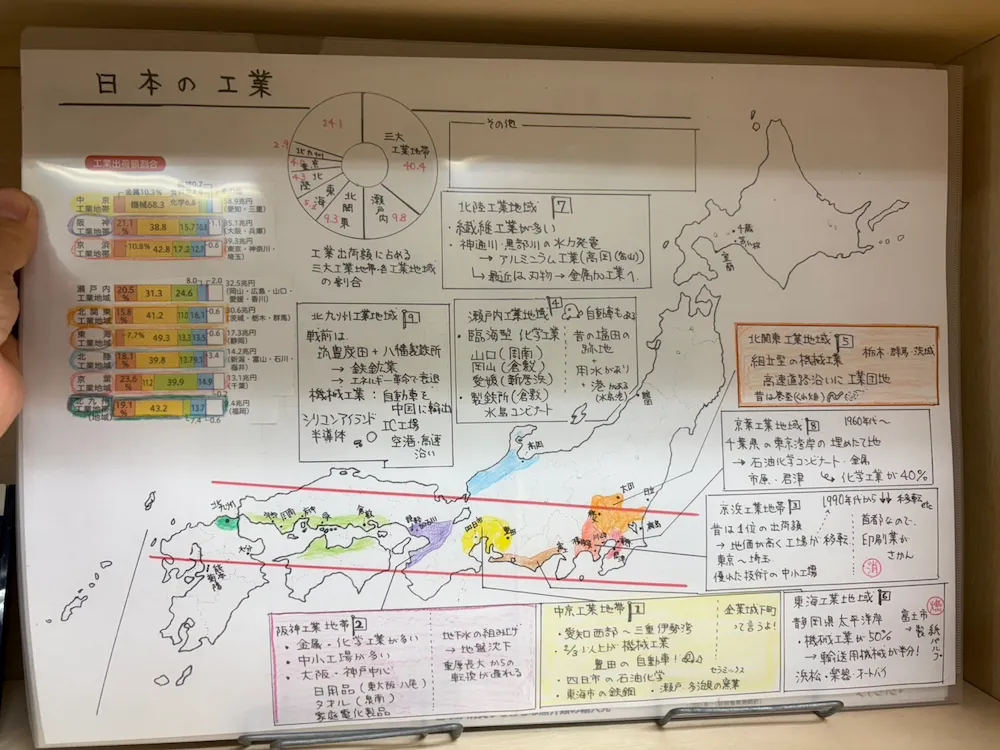 日本の工業
工業出荷額割合
金属10.3%
中京
工業地帯
機械68.3
化学6.8
58.9兆円
(愛知・三重)
阪神
工業地帯
21.1
%
38.8
15.7
(大阪・兵庫)
京浜
工業地帯
10.8%
42.8
17.2
0.6
(東京・神奈川・
埼玉)
8.0
2.0
瀬戸内
工業地域
20.5
%
31.3
24.6
32.5兆円
(岡山・広島・山口・
愛媛・香川)
北関東
工業地域
15.8
%
41.2
0.6
30.6兆円
(茨城・栃木・群馬)
東海
工業地域
7.7%
49.3
17.3兆円
(静岡)
北陸
工業地域
18.1
%
39.8
14.2兆円
(新潟・富山・石川・
福井)
京葉
工業地域
23.6
%
11.2
39.9
14.9
13.1兆円
(千葉)
北九州
工業地帯
(地域)
19.1
%
43.2
(福岡)
7.4
0.6
24.1
三大
工業地帯
40.4
瀬戸内
9.8
北関東
9.3
東海
北陸
4.3
京葉
北九州
工業出荷額に占める
三大工業地帯・各工業地域
の割合
その他
北陸工業地域 7
・繊維工業が多い
・神通川・黒部川の水力発電
→アルミニウム工業(高岡(富山))
↳最近は刃物→金属加工業へ
北九州工業地域 9
戦前は
筑豊炭田+八幡製鉄所
→鉄鋼業
→エネルギー革命で衰退
機械工業:自動車を
中国に輸出
シリコンアイランド
半導体
IC工場
空港・高速
沿い
瀬戸内工業地域 4
自動車も
・臨海型 化学工業
山口(周南)
岡山(倉敷)
愛媛(新居浜)
・製鉄所(倉敷)
水島コンビナート
昔の塩田の
跡地
+
用水があり
・港がある
北関東工業地域 5
栃木・群馬・茨城
組立型の機械工業
高速道路沿いに工業団地
京葉工業地域 8
1960年代〜
千葉県の東京湾岸の埋めたて地
→石油化学コンビナート・金属
市原・君津
↳化学工業が40%
京浜工業地帯 3
1990年代から↓↓移転etc
昔は1位の出荷額
→地価が高く工場が移転
東京〜埼玉
優れた技術の中小工場
首都なので、
印刷業が
さかん
東海工業地域 6
静岡県太平洋岸
・機械工業が50%
→輸送用機械が半分!
浜松・楽器・オートバイ
富士市
→製紙パルプ
阪神工業地帯 2
・金属・化学工業が多い
・中小工場が多い
・大阪・神戸中心
日用品(東大阪・八尾)
タオル(泉南)
家庭電化製品
地下水の組み上げ
→地盤沈下
重厚長大からの
転換が遅れる
中京工業地帯 1
・愛知西部〜三重伊勢湾
・2/3以上が機械工業
豊田の自動車!
・四日市の石油化学
・東海市の鉄鋼
企業城下町
って言うよ!
セラミックス
・瀬戸・多治見の窯業
千歳
苫小牧
室蘭
高岡
太田
日立
鹿島
川崎
君津
豊田
四日市
倉敷
周南
北九州
大分
熊本